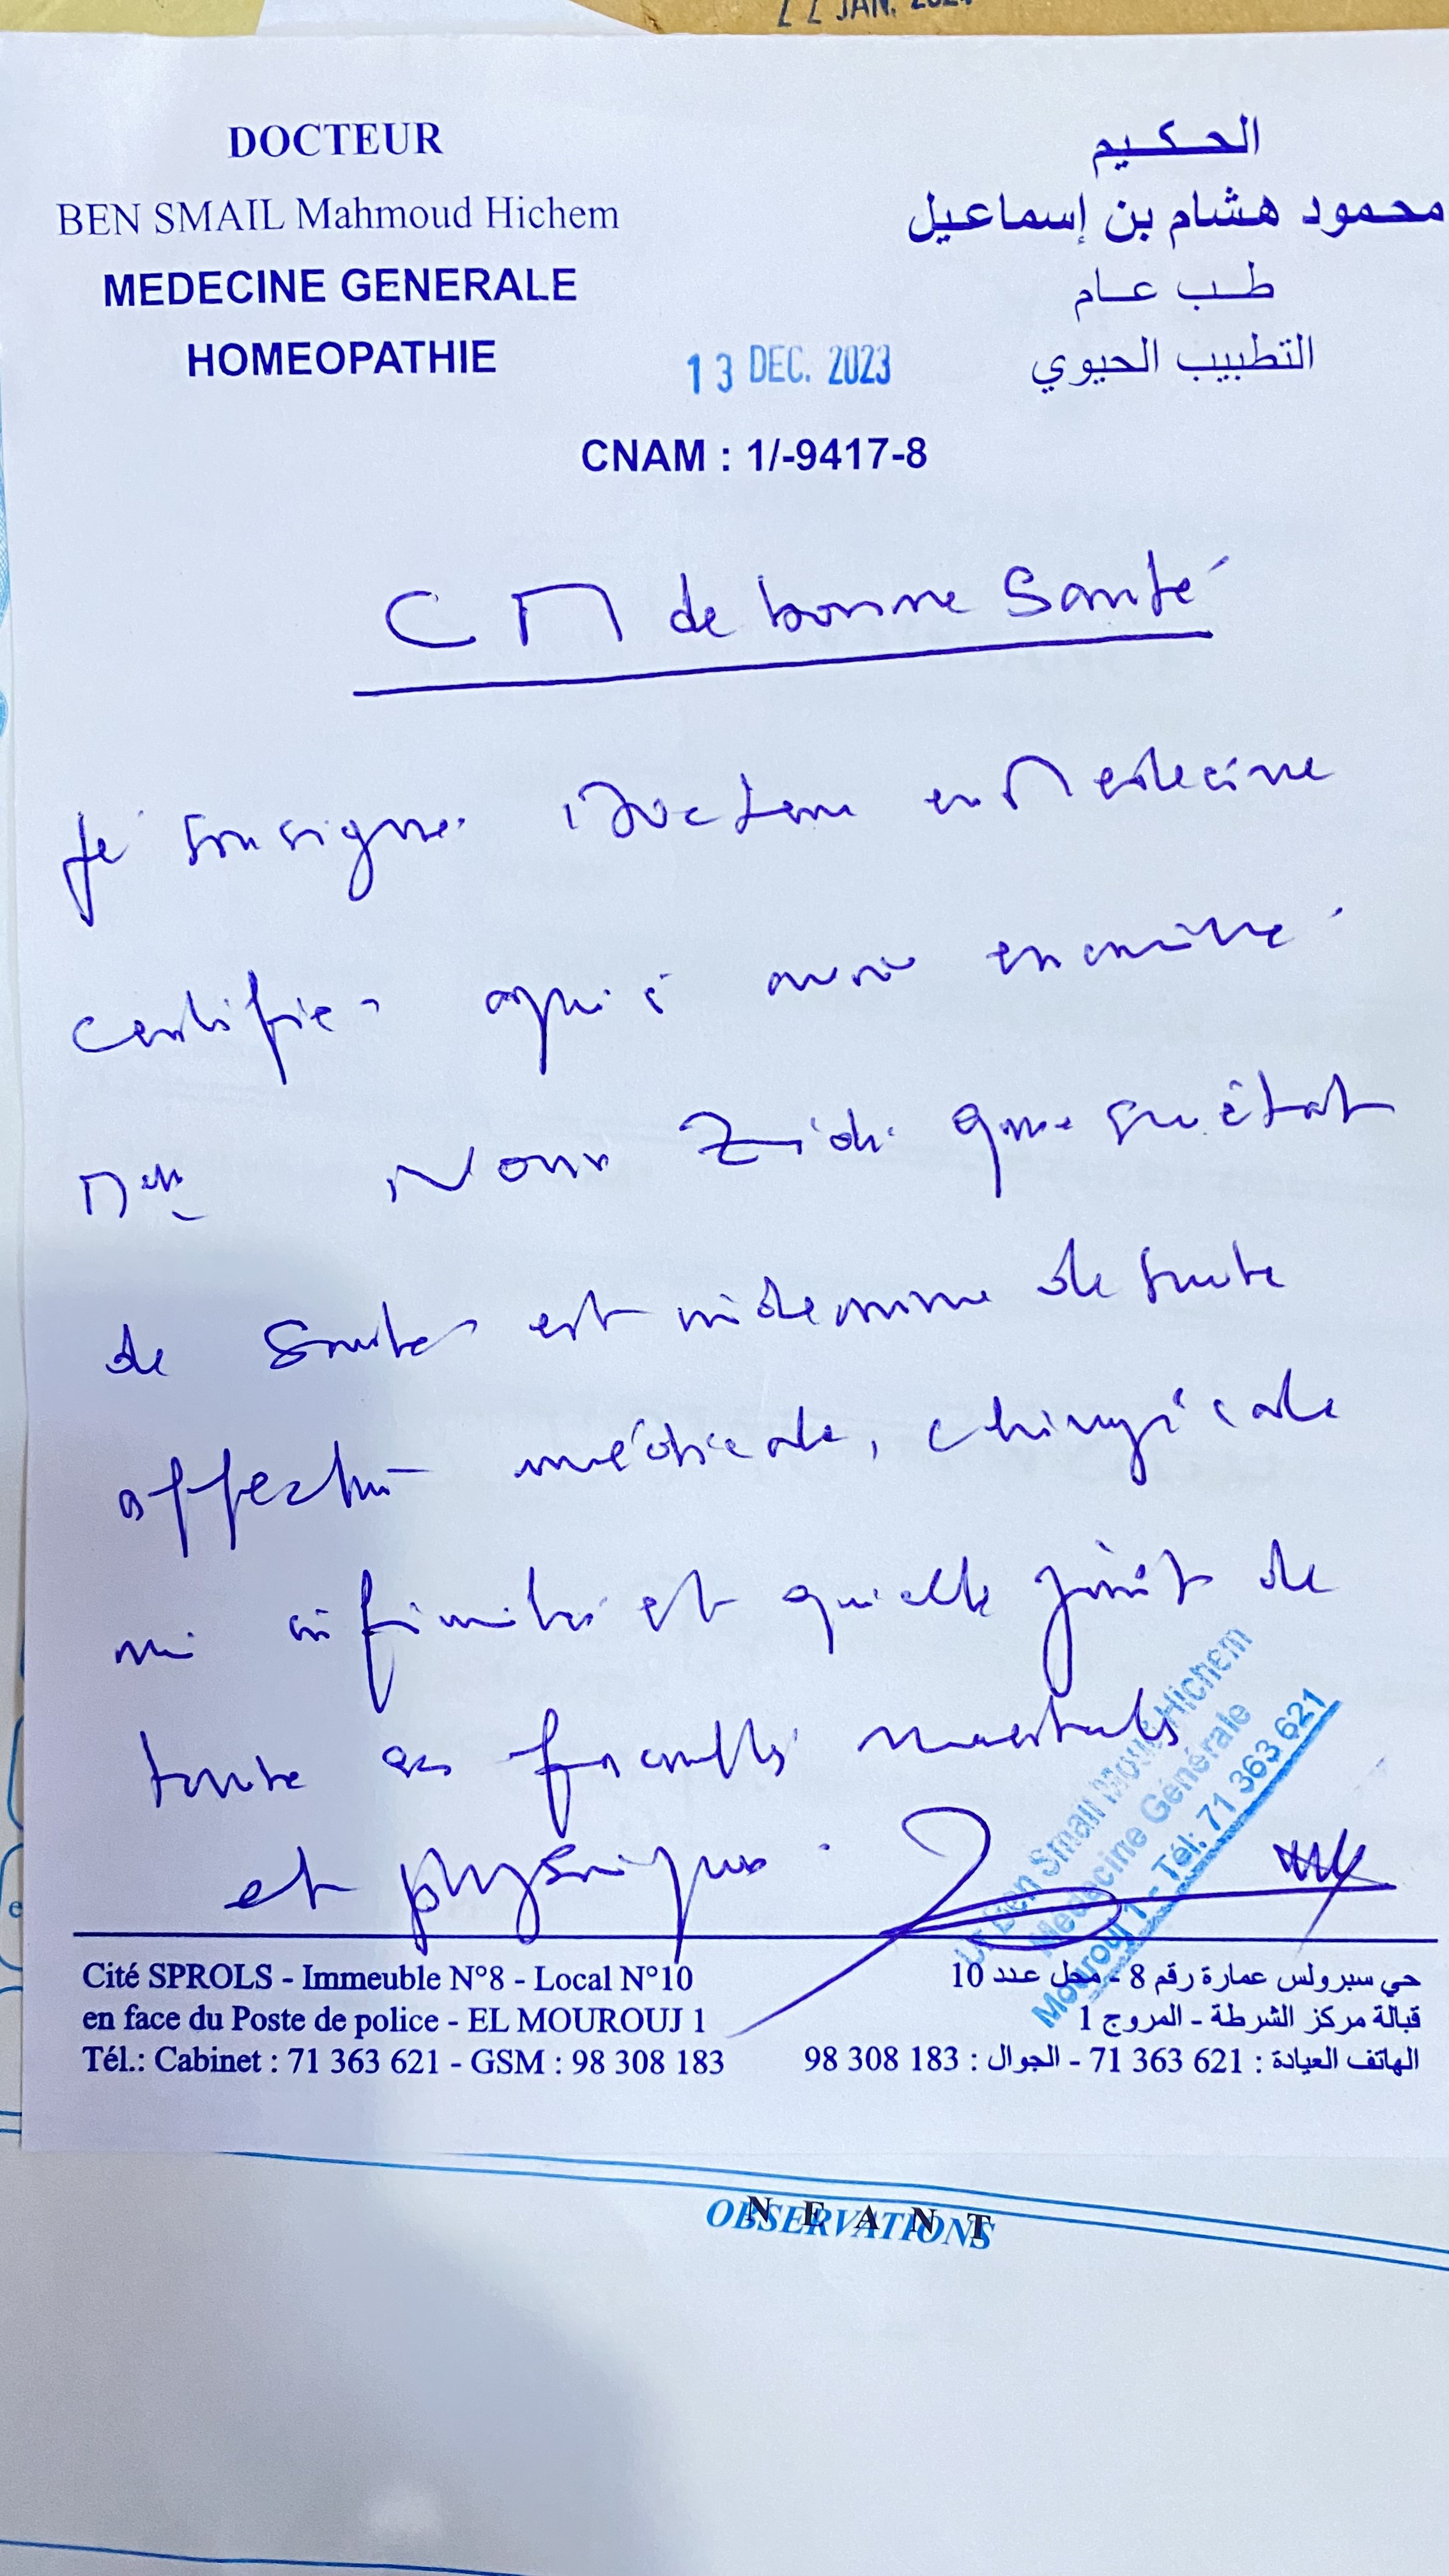 22 JAN.
DOCTEUR
BEN SMAIL Mahmoud Hichem
MEDECINE GENERALE
HOMEOPATHIE
الحكيم
محمود هشام بن إسماعيل
طب عام
التطبيب الحيوي
13 DEC. 2023
CNAM : 1/-9417-8
CM de bonne Santé
Je soussigné Docteur en Médecine
certifie avoir examiné
Melle Nour Zidi que son état
de Santé est indemne de toute
affection médicale, chirurgicale
ni infirmité et qu'elle jouit de
toute ses facultés mentales
et physiques.
Dr Ben Smail Hichem
Médecine Générale
Mourouj 1 - Tél: 71 363 621
Cité SPROLS - Immeuble N°8 - Local N°10
en face du Poste de police - EL MOUROUJ 1
Tél.: Cabinet : 71 363 621 - GSM : 98 308 183
حي سبرولس عمارة رقم 8 - محل عدد 10
قبالة مركز الشرطة - المروج 1
الهاتف العيادة : 71 363 621 - الجوال : 98 308 183
OBSERVATIONS
NEANT